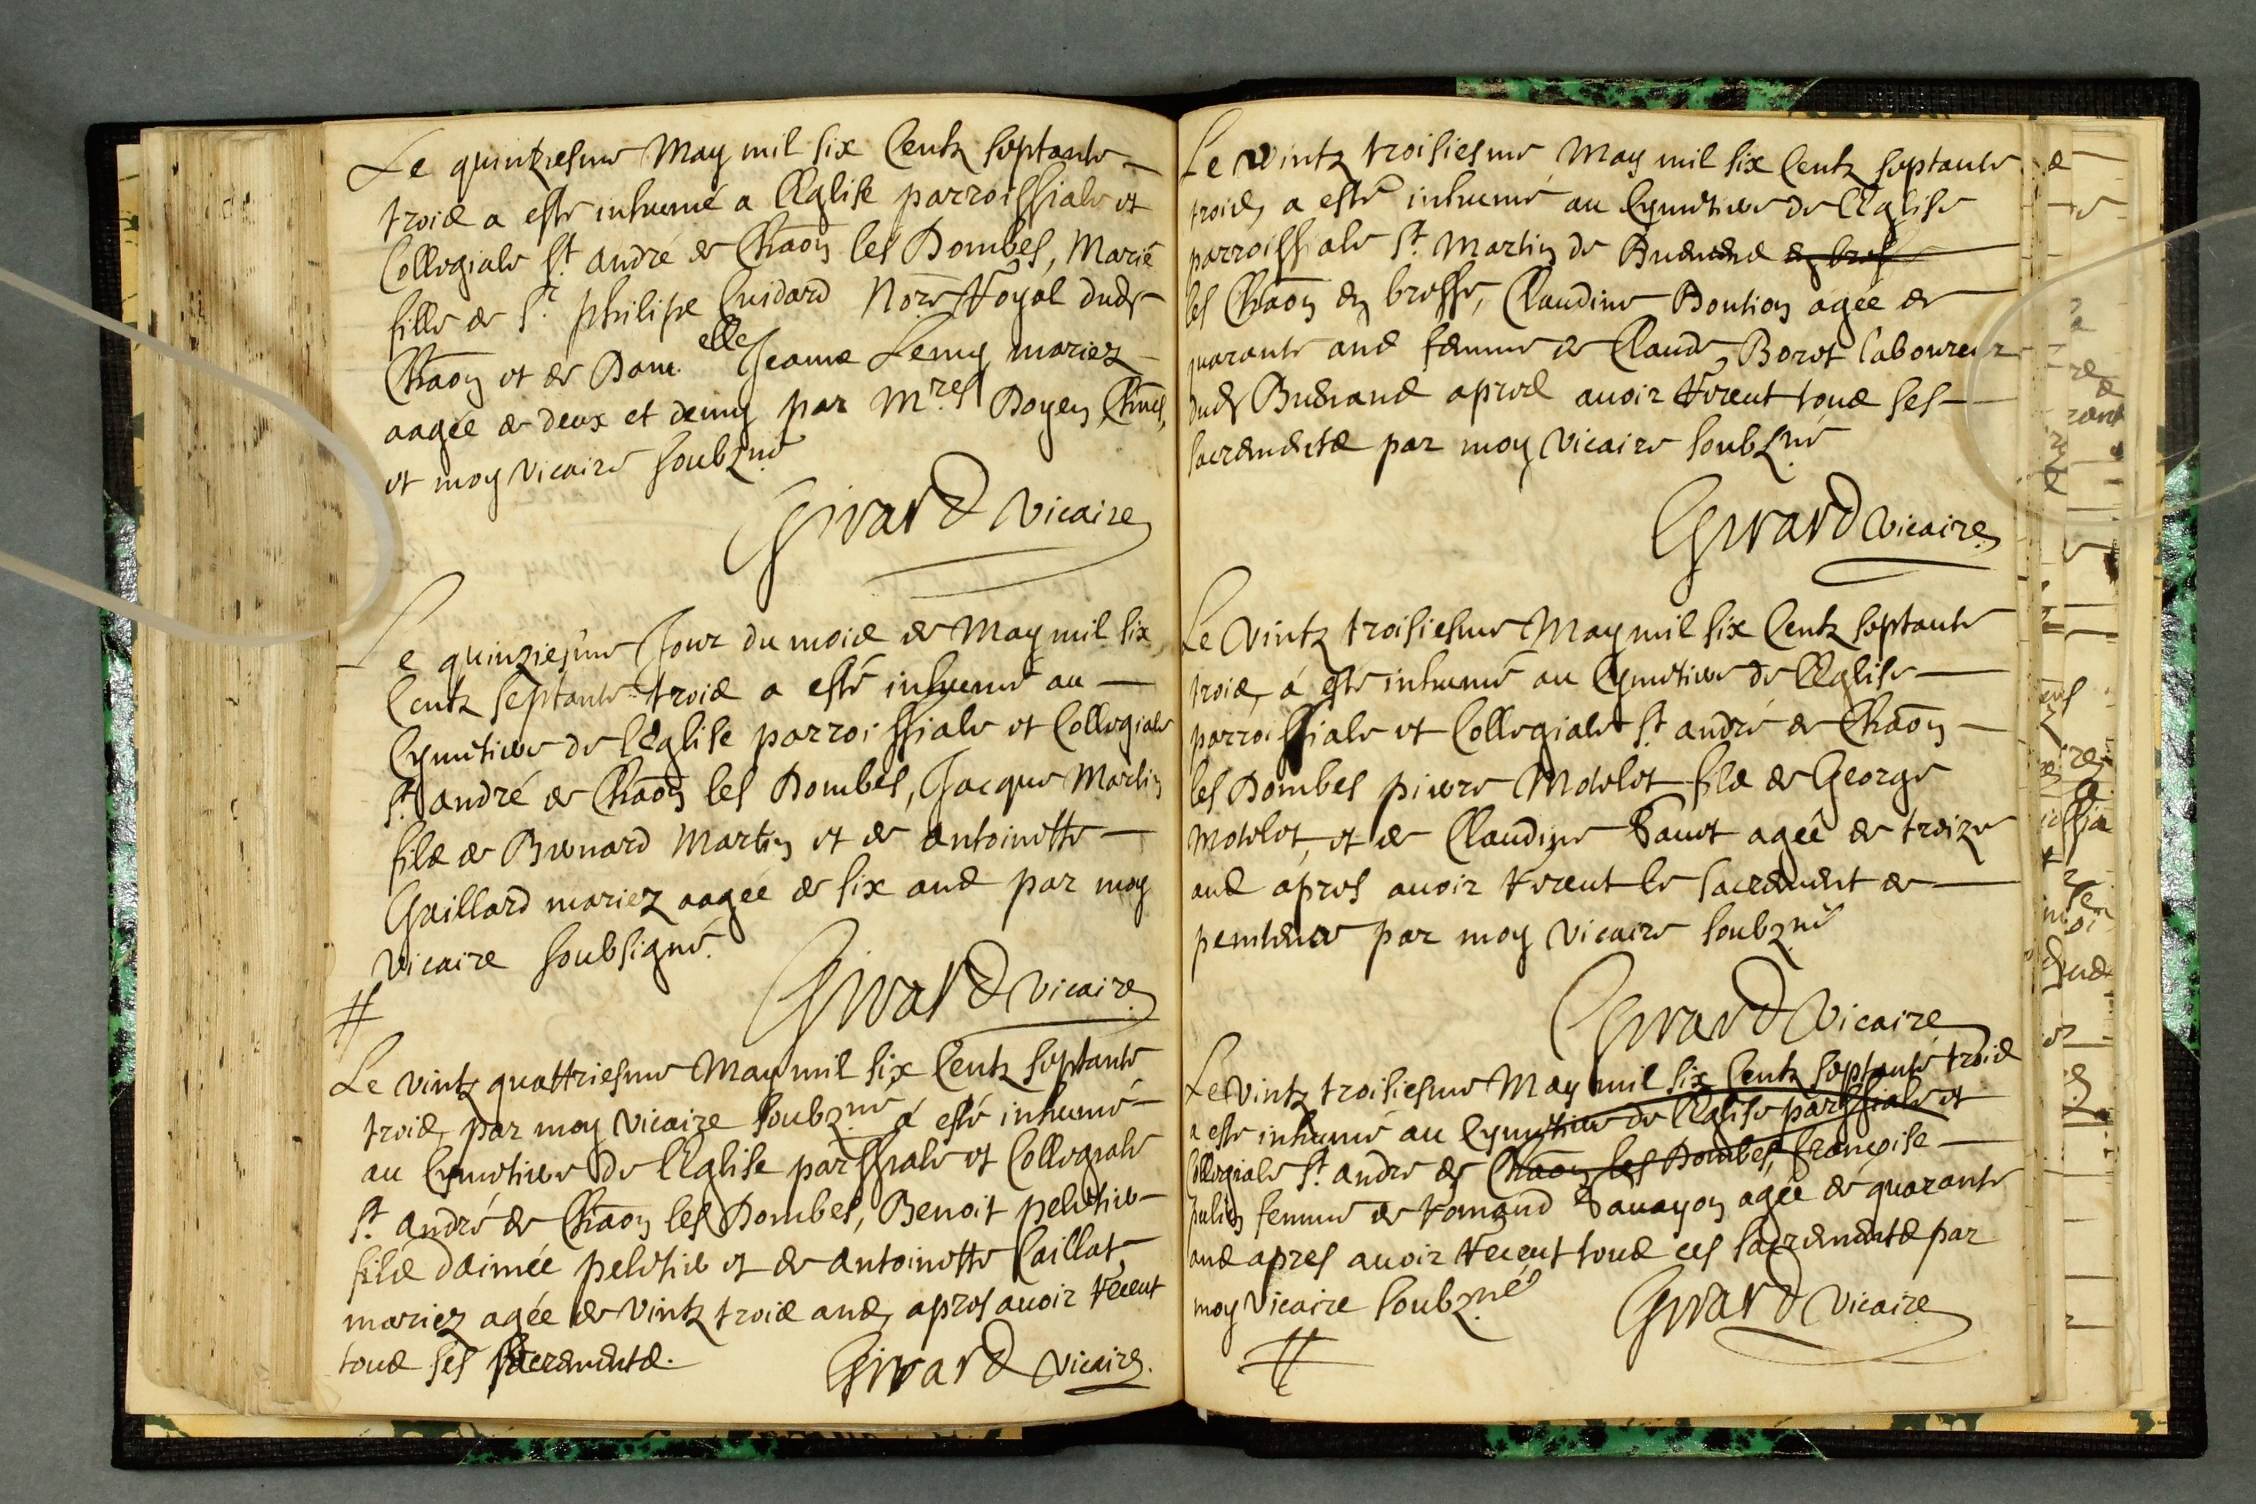 Le quinziesme May mil six Centz septante
trois a esté inhumé a l'Eglise parroissiale et
Collegiale St. André de Chaõn les Dombes, Marie
fille de Sr. philipe Cuidard Nore. Royal dud.
Chaõn et de Dam.elle Jeanne Lemy mariez
aagée de deux et demy par Mres Doyen, Chnes,
et moy vicaire soubzné
Girard vicaire
Le quinziesme Jour du mois de May mil six
Centz septante trois a esté inhumé au
Cymetiere de l'Eglise parroissiale et Collegiale
St. André de Chaõn les Dombes, Jacque Martin
fils de Bernard Martin et de Antoinette
Gaillard mariez aagée de six ans par moy
vicaire soubsigné.
Girard vicaire
#
Le vintz quattriesme May mil six Centz septante
trois, par moy vicaire soubzné a esté inhumé
au Cymetiere de l'Eglise parssiale et Collegiale
St. André de Chaõn les Dombes, Benoit peletier
fils d'aimée peletier et de Antoinette Caillat,
mariez agée de vintz trois ans, apres avoir receut
tous ses sacrements.
Girard vicaire.
Le vintz troisiesme May mil six Centz septante
trois, a esté inhumé au Cymetiere de l'Eglise
parroissiale St. Martin de en bresse
les Chaõn en bresse, Claudine Boution agée de
quarante ans femme de Claude Boret laboureur
dud. apres avoir receut tous ses
sacrements par moy vicaire soubzné
Girard vicaire
Le vintz troisiesme May mil six Centz septante
trois, a esté inhumé au Cymetiere de l'Eglise
parroissiale et Collegiale St. André de Chaõn
les Dombes pierre Motelet fils de George
Motelet, et de Claudine Savet agée de treize
ans apres avoir receut le sacrement de
penitence par moy vicaire soubzné
Girard vicaire
Le vintz troisiesme May mil six Centz septante trois
a esté inhumé au Cymetiere de l'Eglise parssiale et
Collegiale St. André de Chaõn les Dombes, françoise
pulin femme de Romand Savayon agée de quarante
ans apres avoir receut tous ces sacrements par
moy vicaire soubzné
Girard vicaire
#